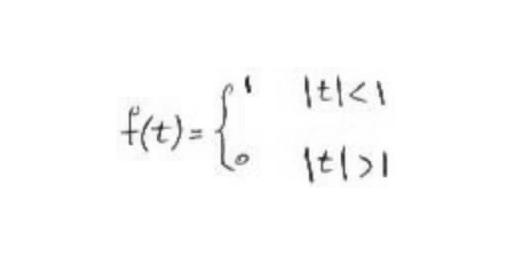 f(t) = { 1 |t| < 1
0 |t| > 1